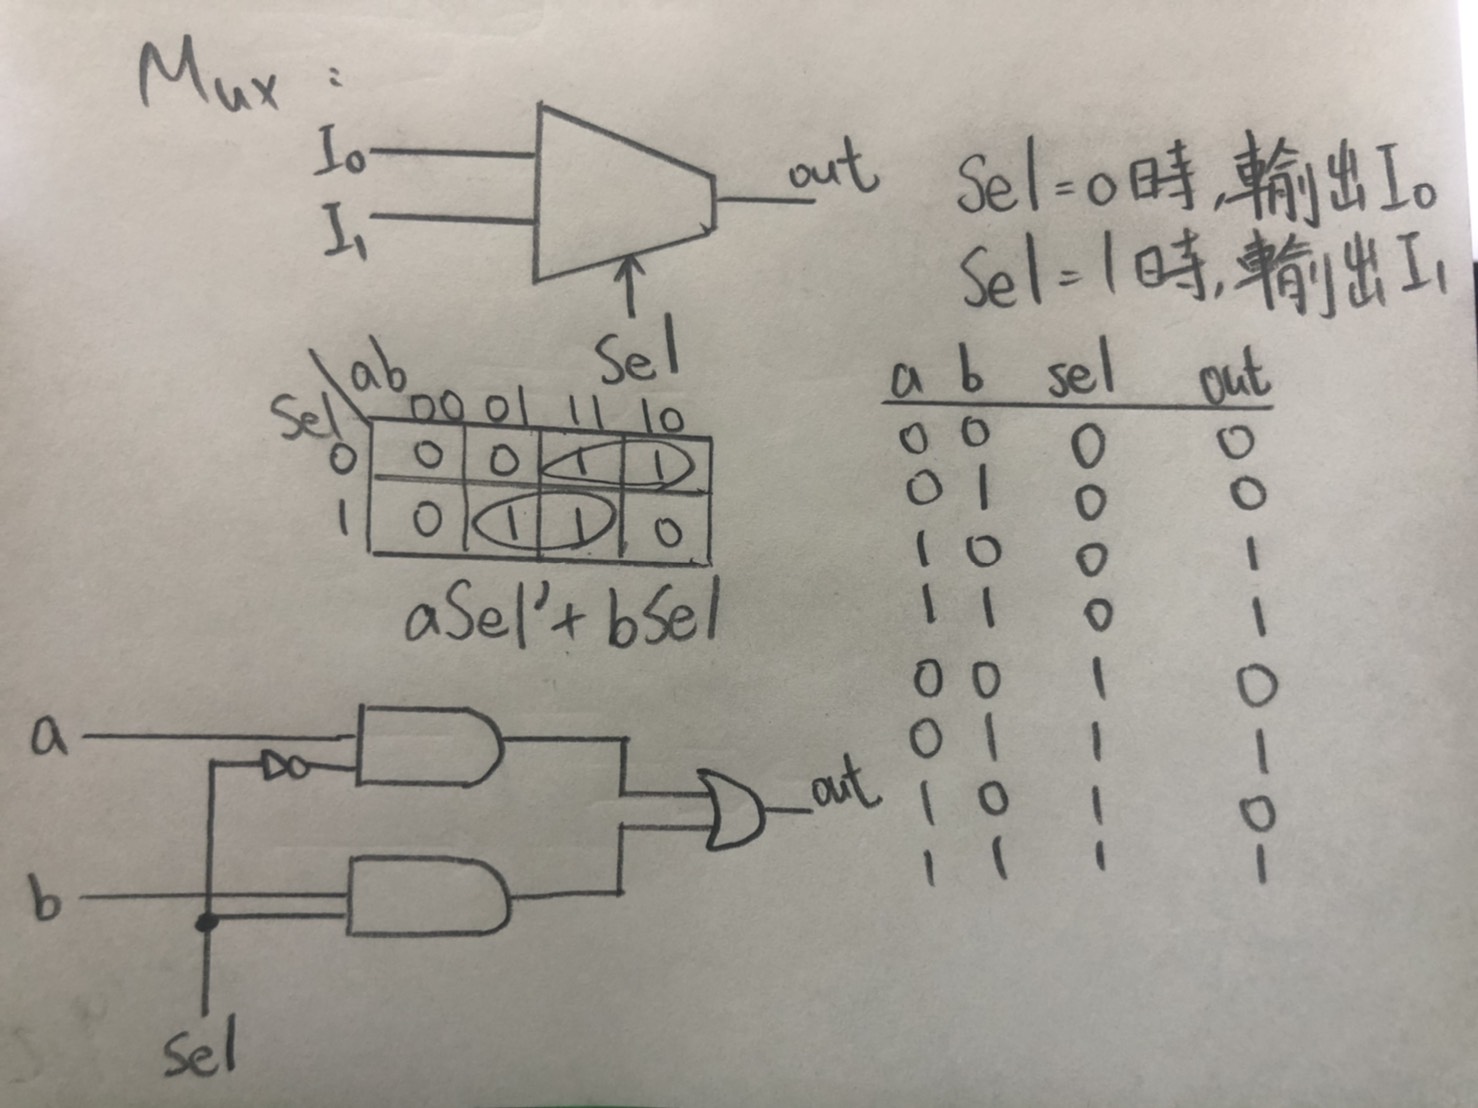 Mux :
I₀
I₁
out
Sel
Sel=0時,輸出I₀
Sel=1時,輸出I₁
ab
Sel
00 01 11 10
0 0 0 1 1
1 0 1 1 0
aSel'+bSel
a b sel out
0 0 0 0
0 1 0 0
1 0 0 1
1 1 0 1
0 0 1 0
0 1 1 1
1 0 1 0
1 1 1 1
a
b
out
Sel